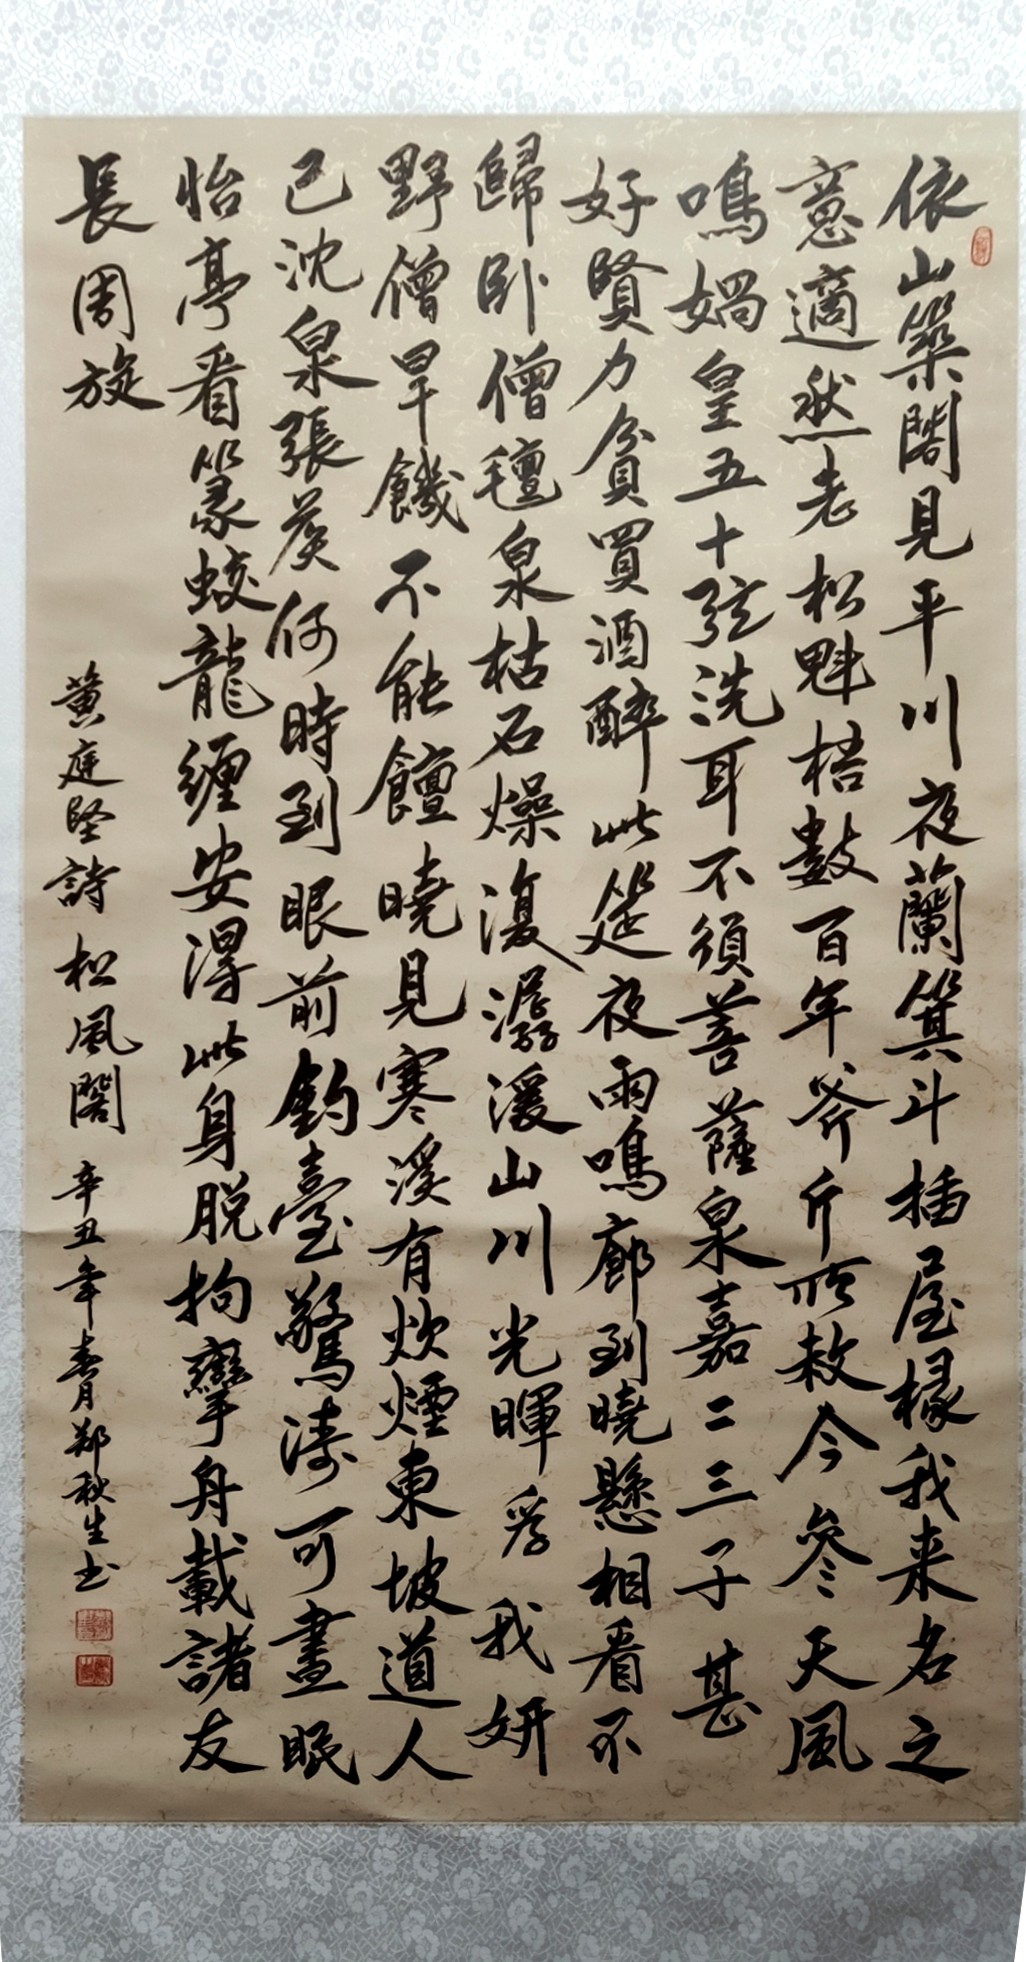 依山築閣見平川夜蘭箕斗插屋椽我来名之
意適然老松魁梧數百年斧斤所赦今參天風
鳴媧皇五十弦洗耳不須菩薩泉嘉二三子甚
好賢力貧買酒醉此筵夜雨鳴廊到曉懸相看不
歸卧僧氊泉枯石燥復潺湲山川光暉為我妍
野僧旱饑不能饘曉見寒溪有炊煙東坡道人
已沈泉張侯何時到眼前釣臺驚濤可晝眠
怡亭看篆蛟龍纏安得此身脱拘攣舟載諸友
長周旋
黄庭堅詩松風閣辛丑年春月鄭秋生书